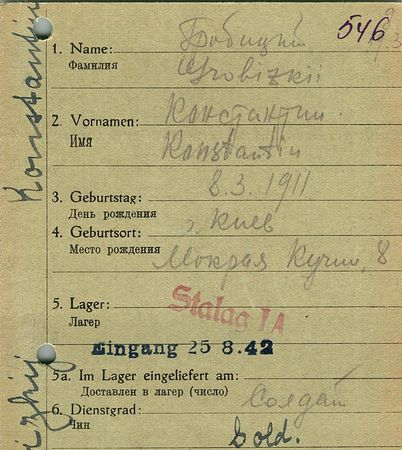 546
1. Name: Гробицкий
Фамилия Grobizkii
2. Vornamen: Константин
Имя Konstantin
3. Geburtstag: 8.3.1911
День рождения
4. Geburtsort: г. Киев
Место рождения Мокрая 8
5. Lager: Stalag IA
Лагер
Eingang 25 8.42
5a. Im Lager eingeliefert am:
Доставлен в лагер (число)
6. Dienstgrad: Солдат
Чин Sold.
Konstantin